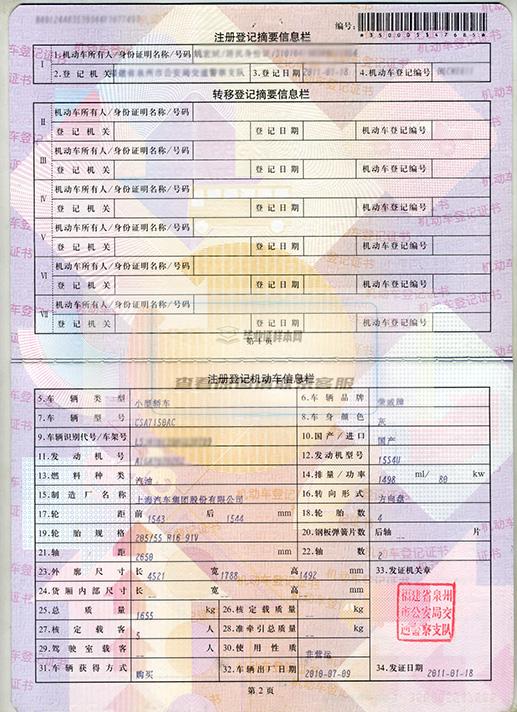 注册登记摘要信息栏
编号:
*350005547685*
I
1.机动车所有人/身份证明名称/号码
2.登记机关 福建省泉州市公安局交通警察支队 3.登记日期 2011-01-18 4.机动车登记编号
转移登记摘要信息栏
II 机动车所有人/身份证明名称/号码
登记机关 登记日期 机动车登记编号
III 机动车所有人/身份证明名称/号码
登记机关 登记日期 机动车登记编号
IV 机动车所有人/身份证明名称/号码
登记机关 登记日期 机动车登记编号
V 机动车所有人/身份证明名称/号码
登记机关 登记日期 机动车登记编号
VI 机动车所有人/身份证明名称/号码
登记机关 登记日期 机动车登记编号
VII 机动车所有人/身份证明名称/号码
登记机关 登记日期 机动车登记编号
毕业证样本网
第1页
注册登记机动车信息栏
5.车辆类型 小型轿车 6.车辆品牌 荣威牌
7.车辆型号 CSA7150AC 8.车身颜色 灰
9.车辆识别代号/车架号 10.国产/进口 国产
11.发动机号 12.发动机型号 15S4U
13.燃料种类 汽油 14.排量/功率 1498 ml/ 80 kw
15.制造厂名称 上海汽车集团股份有限公司 16.转向形式 方向盘
17.轮距 前 1543 后 1544 mm 18.轮胎数 4
19.轮胎规格 205/55 R16 91V 20.钢板弹簧片数 后轴 -- 片
21.轴距 2650 mm 22.轴数 2
23.外廓尺寸 长 4521 宽 1788 高 1492 mm 33.发证机关章
24.货厢内部尺寸 长 -- 宽 -- 高 -- mm
25.总质量 1655 kg 26.核定载质量 -- kg
27.核定载客 5 人 28.准牵引总质量 -- kg
29.驾驶室载客 -- 人 30.使用性质 非营运
31.车辆获得方式 购买 32.车辆出厂日期 2010-07-09 34.发证日期 2011-01-18
福建省泉州
市公安局交
通警察支队
第2页